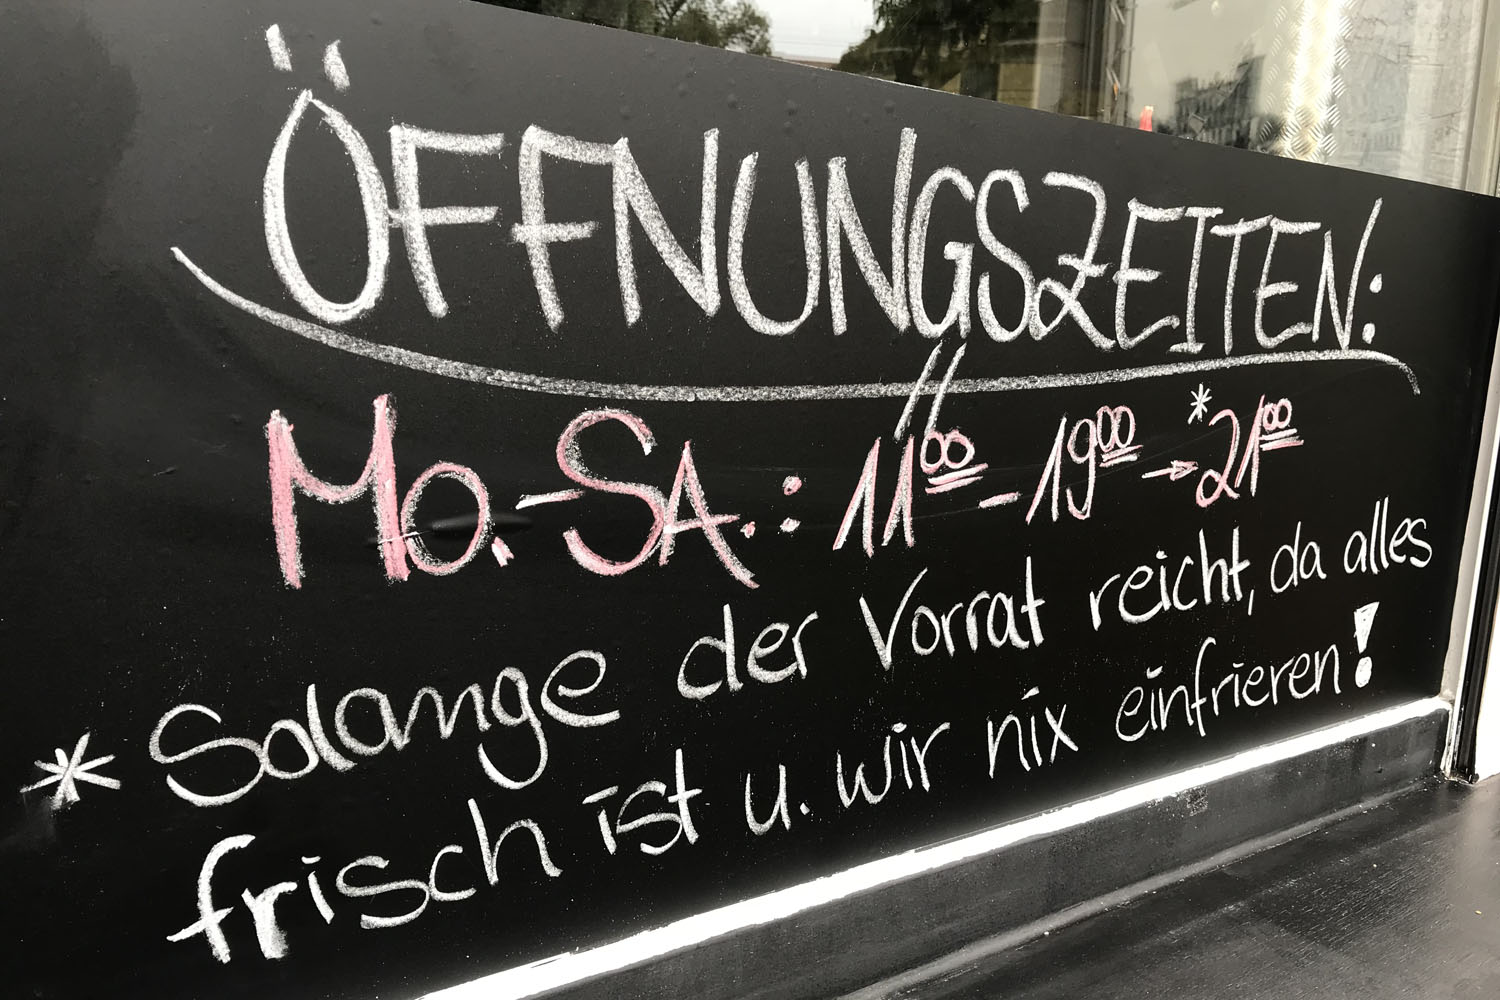 ÖFFNUNGSZEITEN:
Mo.-SA.: 11⁰⁰ - 19⁰⁰ → *21⁰⁰
* Solange der Vorrat reicht, da alles
frisch ist u. wir nix einfrieren!